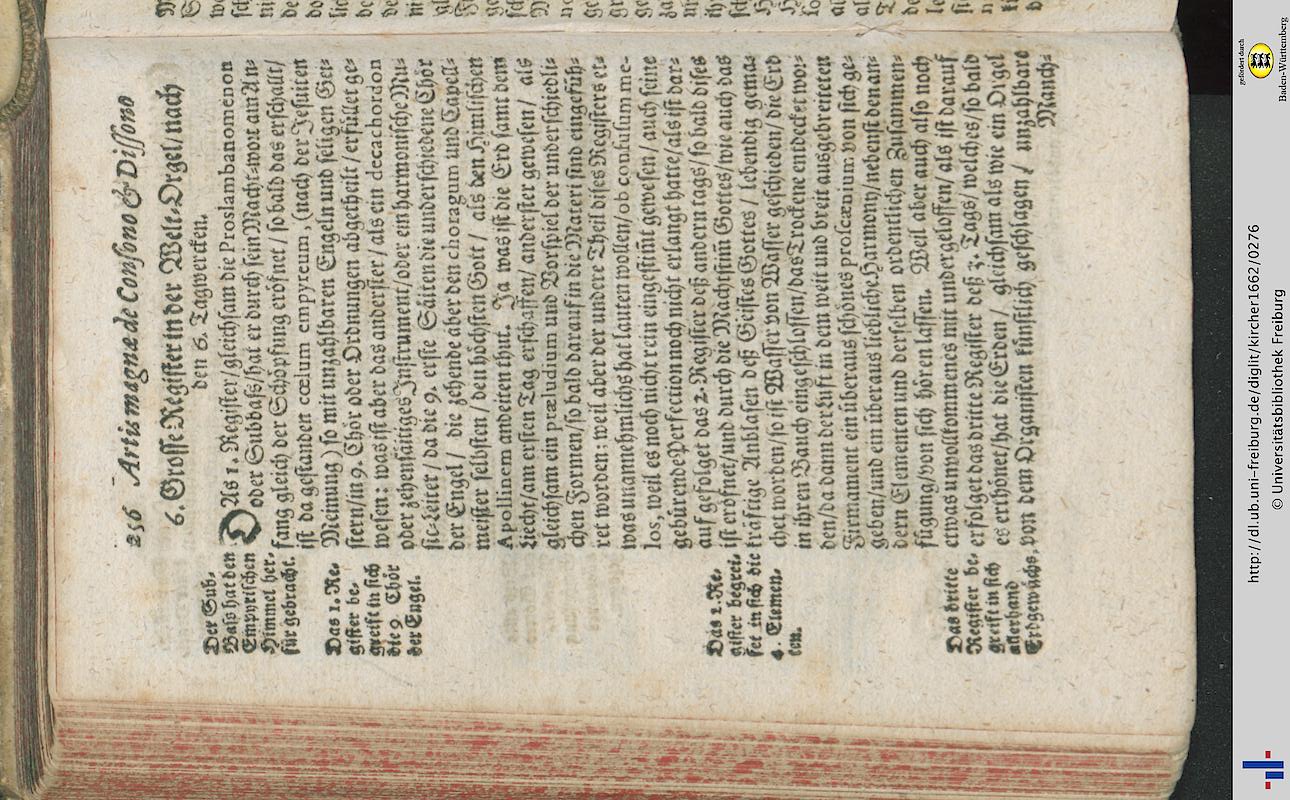 256 Artis magnæ de Consono & Dissono
6. Grosse Register in der Welt-Orgel / nach
den 6. Tagwercken.
DAs 1. Register / gleichsam die Proslambanomenon
oder Subbass / hat er durch sein Macht-wort am An-
fang gleich der Schöpfung eröfnet / so bald das erschallt /
ist da gestanden cœlum empyreum, (nach der Jesuiten
Meinung) so mit unzahlbaren Engeln und seligen Gei-
stern / in 9. Chör oder Ordnungen abgetheilt / erfüllet ge-
wesen: was ist aber das anderster / als ein decachordon
oder zehensäitiges Instrument / oder ein harmonische Mu-
sic-leiter / da die 9. erste Säiten die underschiedene Chör
der Engel / die zehende aber den choragum und Capell-
meister selbsten / den höchsten Gott / als den Himlischen
Apollinem andeiten thut. Ja was ist die Erd samt dem
Liecht / am ersten Tag erschaffen / anderster gewesen / als
gleichsam ein præludium und Vorspiel der underschiedli-
chen Formen / so bald darauf in die Materi sind eingefüh-
ret worden: weil aber der andere Theil dises Registers et-
was unannehmlichs hat lauten wollen / ob confusum me-
los, weil es noch nicht rein eingestim̃t gewesen / auch seine
gebürende Perfection noch nicht erlangt hatte / als ist dar-
auf gefolget das 2. Register deß andern tags / so bald dises
ist erofnet / und durch die Machstim̃ Gottes / wie auch das
kräftige Anblasen deß Geistes Gottes / lebendig gema-
chet worden / so ist Wasser von Wasser geschieden / die Erd
in ihren Bauch eingeschlossen / das Trockene entdecket wor-
den / da dann der Luft in dem weit und breit ausgebreiteten
Firmament ein überaus schönes proscænium von sich ge-
geben / und ein überaus liebliche Harmony / nebenst den an-
dern Elementen und derselben ordentlichen Zusammen-
fügung / von sich hören lassen. Weil aber auch also noch
etwas unvollkommenes mit undergeloffen / als ist darauf
erfolget das dritte Register deß 3. Tags / welches / so bald
es erthönet / hat die Erden / gleichsam als wie ein Orgel
von dem Organisten künstlich geschlagen / unzahlbare
Manch-
Der Sub-
Bass hat den
Empyrischen
Himmel her-
für gebracht.
Das 1. Re-
gister be-
greift in sich
die 9. Chör
der Engel.
Das 2. Re-
gister begrei-
fet in sich die
4. Elemen-
ten.
Das dritte
Register be-
greift in sich
allerhand
Erdgewächs.
http://dl.ub.uni-freiburg.de/diglit/kircher1662/0276
© Universitätsbibliothek Freiburg
gefördert durch
Baden-Württemberg